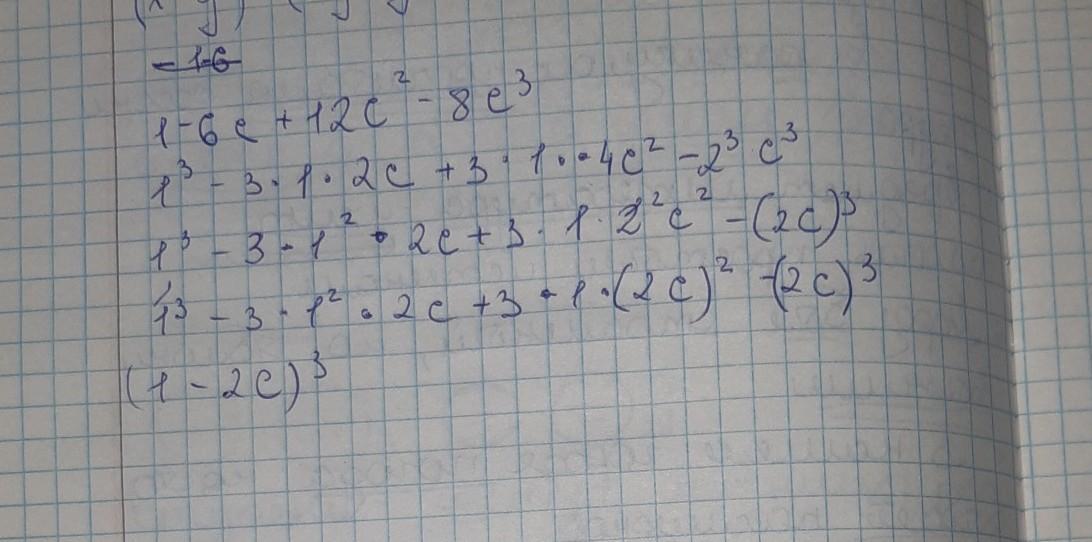 -16
1-6c+12c²-8c³
1³-3·1·2c+3·1··4c²-2³·c³
1³-3·1²·2c+3·1·2²c²-(2c)³
1³-3·1²·2c+3·1·(2c)²-(2c)³
(1-2c)³